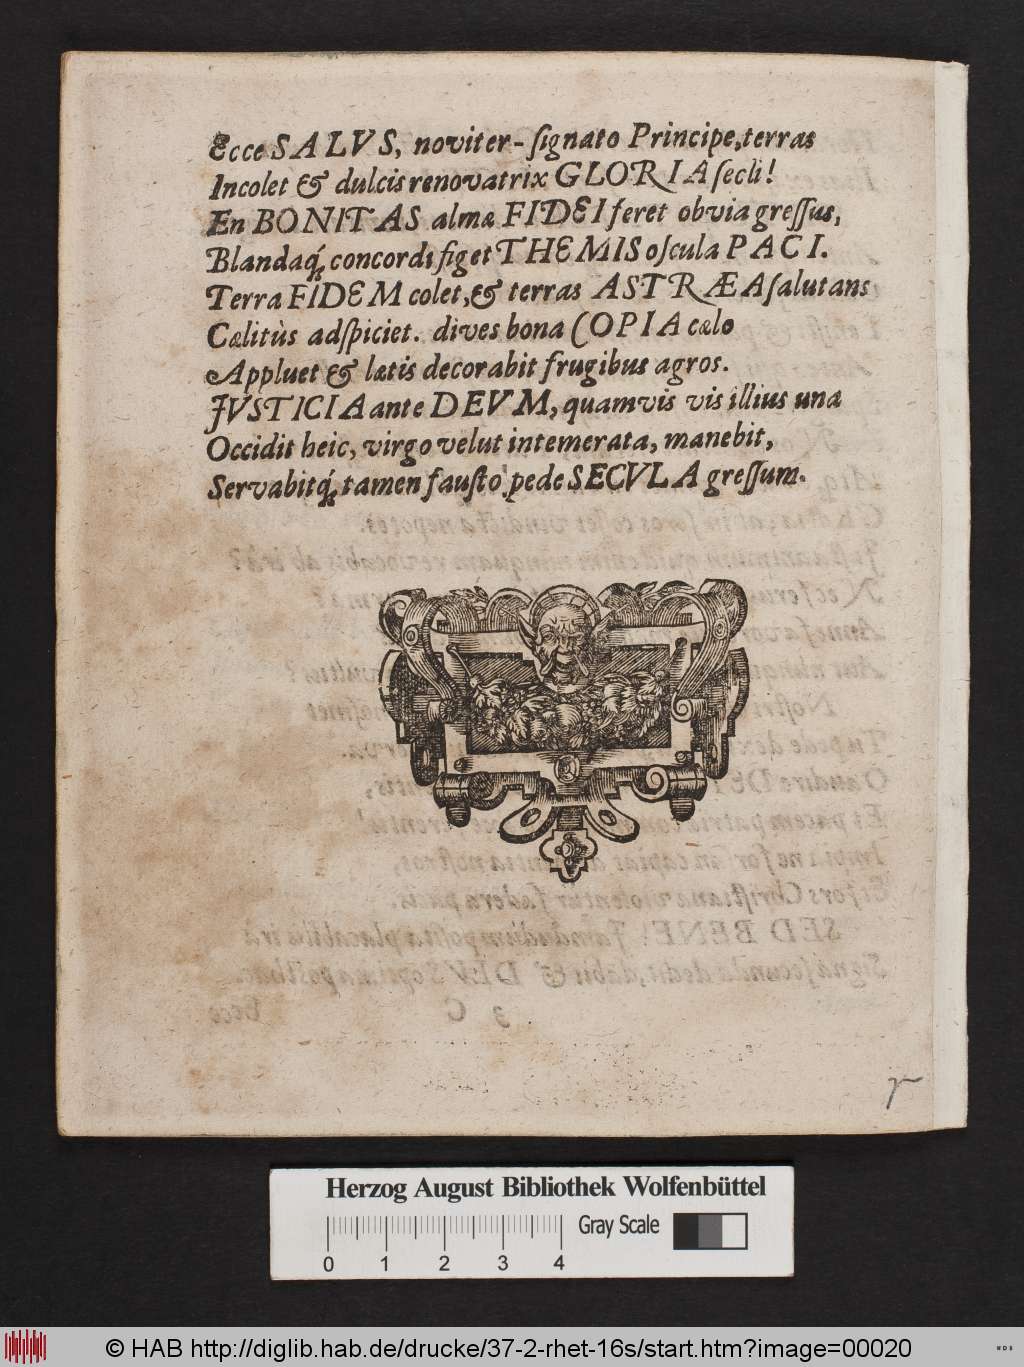 Ecce SALVS, noviter-ſignato Principe, terras
Incolet & dulcis renovatrix GLORIA ſecli!
En BONITAS almæ FIDEI feret obvia greſſus,
Blandaq́; concordi figet THEMIS oſcula PACI.
Terra FIDEM colet, & terras ASTRÆA ſalutans
Cælitùs adſpiciet. dives bona COPIA cælo
Appluet & lætis decorabit frugibus agros.
JVSTICIA ante DEVM, quamvis vis illius una
Occidit heic, virgo velut intemerata, manebit,
Servabitq́; tamen fauſto pede SECVLA greſſum.
Herzog August Bibliothek Wolfenbüttel
0 1 2 3 4 Gray Scale
© HAB http://diglib.hab.de/drucke/37-2-rhet-16s/start.htm?image=00020